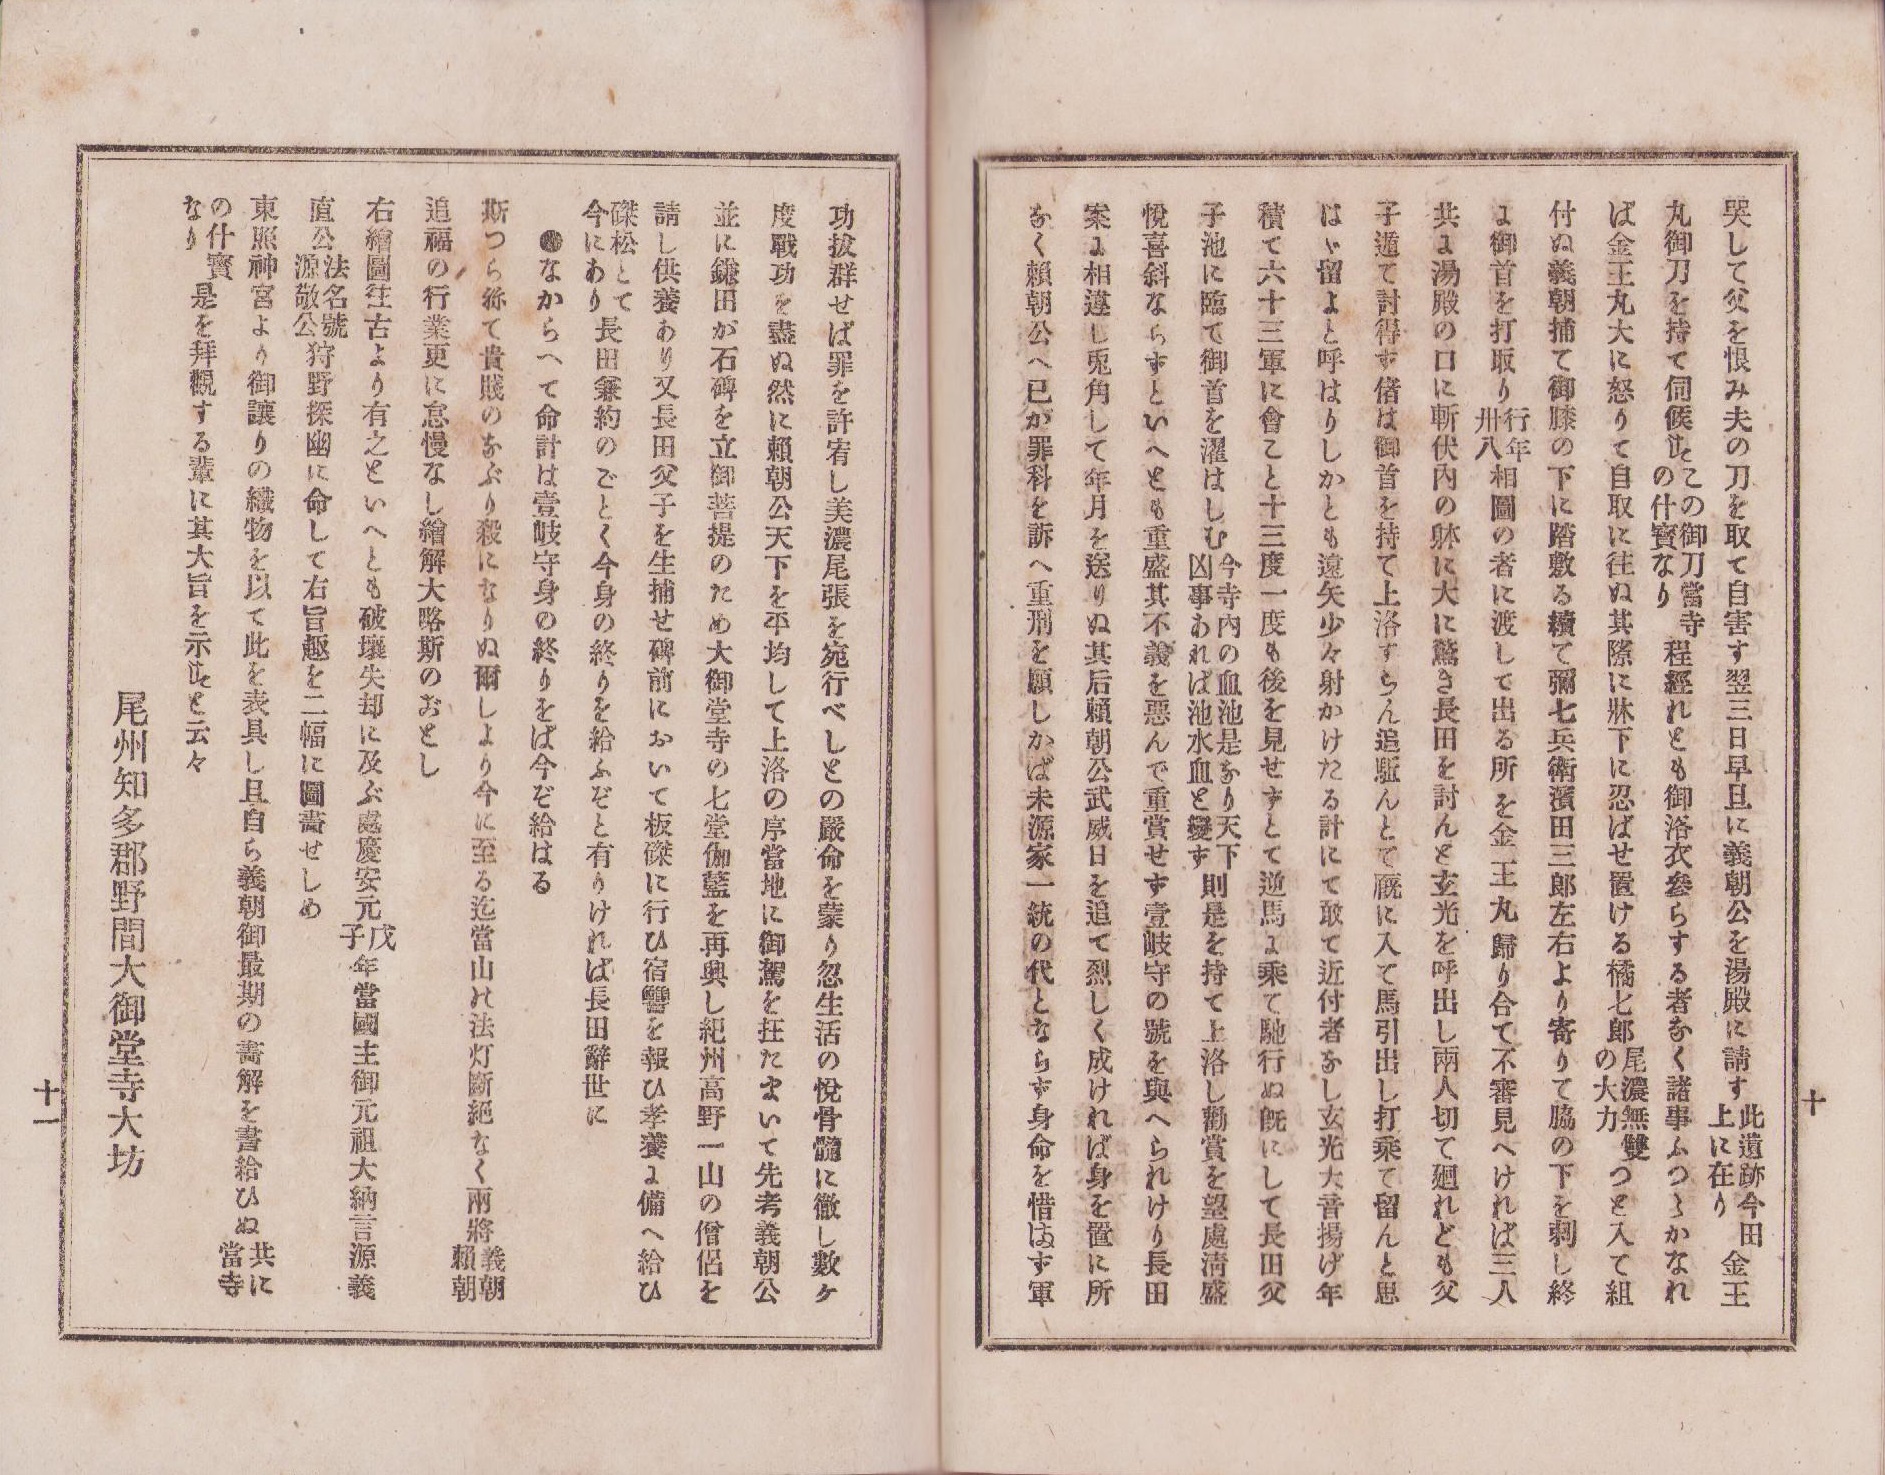 哭して父を恨み夫の刀を取て自害す翌三日早旦に義朝公を湯殿に請す此遺跡今田上に在り金王
丸御刀を持て伺候しこの御刀當寺の什寳なり程經れとも御浴衣參らする者なく諸事ふつゝかなれ
ば金王丸大に怒りて自取に往ぬ其際に牀下に忍ばせ置ける橘七郎尾濃無雙の大力つと入て組
付ぬ義朝捕て御膝の下に踏敷る續て彌七兵衛濱田三郎左右より寄りて脇の下を刺し終
に御首を打取り行年卅八相圖の者に渡して出る所を金王丸歸り合て不審見へければ三人
共に湯殿の口に斬伏内の躰に大に驚き長田を討んと玄光を呼出し兩人切て廻れども父
子遁て討得す偖は御首を持て上洛すらん追駈んとて厩に入て馬引出し打乘て留んと思
はゝ留よと呼はりしかとも遠矢少々射かけたる計にて敢て近付者なし玄光大音揚げ年
積て六十三軍に會こと十三度一度も後を見せすとて逆馬に乘て馳行ぬ既にして長田父
子池に臨て御首を濯はしむ今寺内の血池是なり天下凶事あれば池水血と變す則是を持て上洛し勸賞を望處淸盛
悅喜斜ならすといへとも重盛其不義を惡んで重賞せす壹岐守の號を與へられけり長田
案に相違し兎角して年月を送りぬ其后賴朝公武威日を追て烈しく成ければ身を置に所
なく賴朝公へ已が罪科を訴へ重刑を願しかば未源家一統の代とならす身命を惜はす軍
十
功拔群せば罪を許宥し美濃尾張を宛行べしとの嚴命を蒙り忽生活の悅骨髓に徹し數ヶ
度戰功を盡ぬ然に賴朝公天下を平均して上洛の序當地に御駕を抂たまいて先考義朝公
並に鎌田が石碑を立御菩提のため大御堂寺の七堂伽藍を再興し紀州高野一山の僧侶を
請し供養あり又長田父子を生捕せ碑前において板磔に行ひ宿讐を報ひ孝養に備へ給ひ
磔松とて今にあり長田兼約のごとく今身の終りを給ふぞと有りければ長田辭世に
●ながらへて命計は壹岐守身の終りをば今ぞ給はる
斯つら祢て貴賤のなぶり殺になりぬ爾しより今に至る迄當山の法灯斷絕なく兩將義朝賴朝
追福の行業更に怠慢なし繪解大略斯のおとし
右繪圖往古より有之といへとも破壞失却に及ぶ處慶安元戊子年當國主御元祖大納言源義
直公法名號源敬公狩野探幽に命して右旨趣を二幅に圖畵せしめ
東照神宮より御讓りの織物を以て此を表具し且自ら義朝御最期の畵解を書給ひぬ共に當寺
の什寳なり是を拜觀する輩に其大旨を示しと云々
尾州知多郡野間大御堂寺大坊
十一